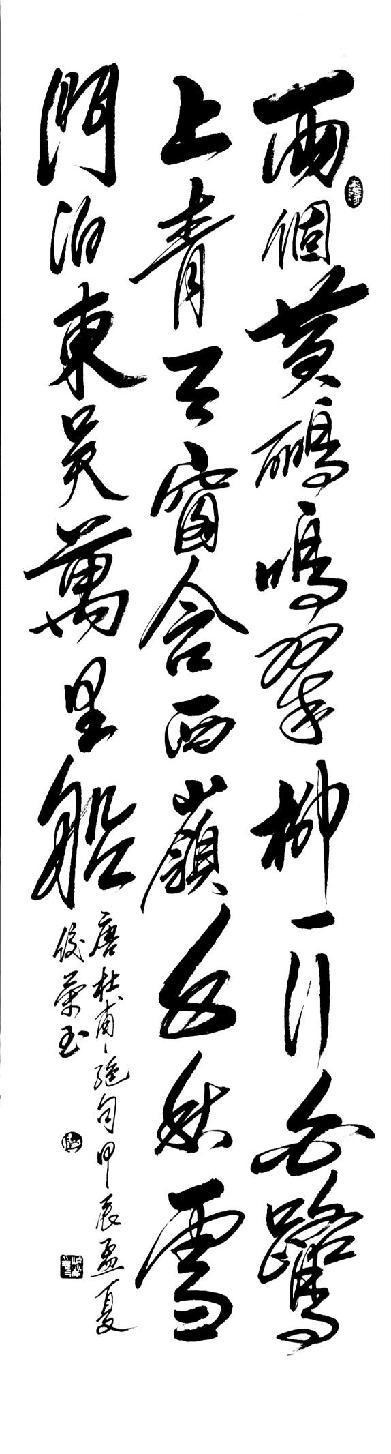 兩個黃鸝鳴翠柳一行白鷺
上青天窗含西嶺千秋雪
門泊東吳萬里船
唐杜甫絕句甲辰孟夏